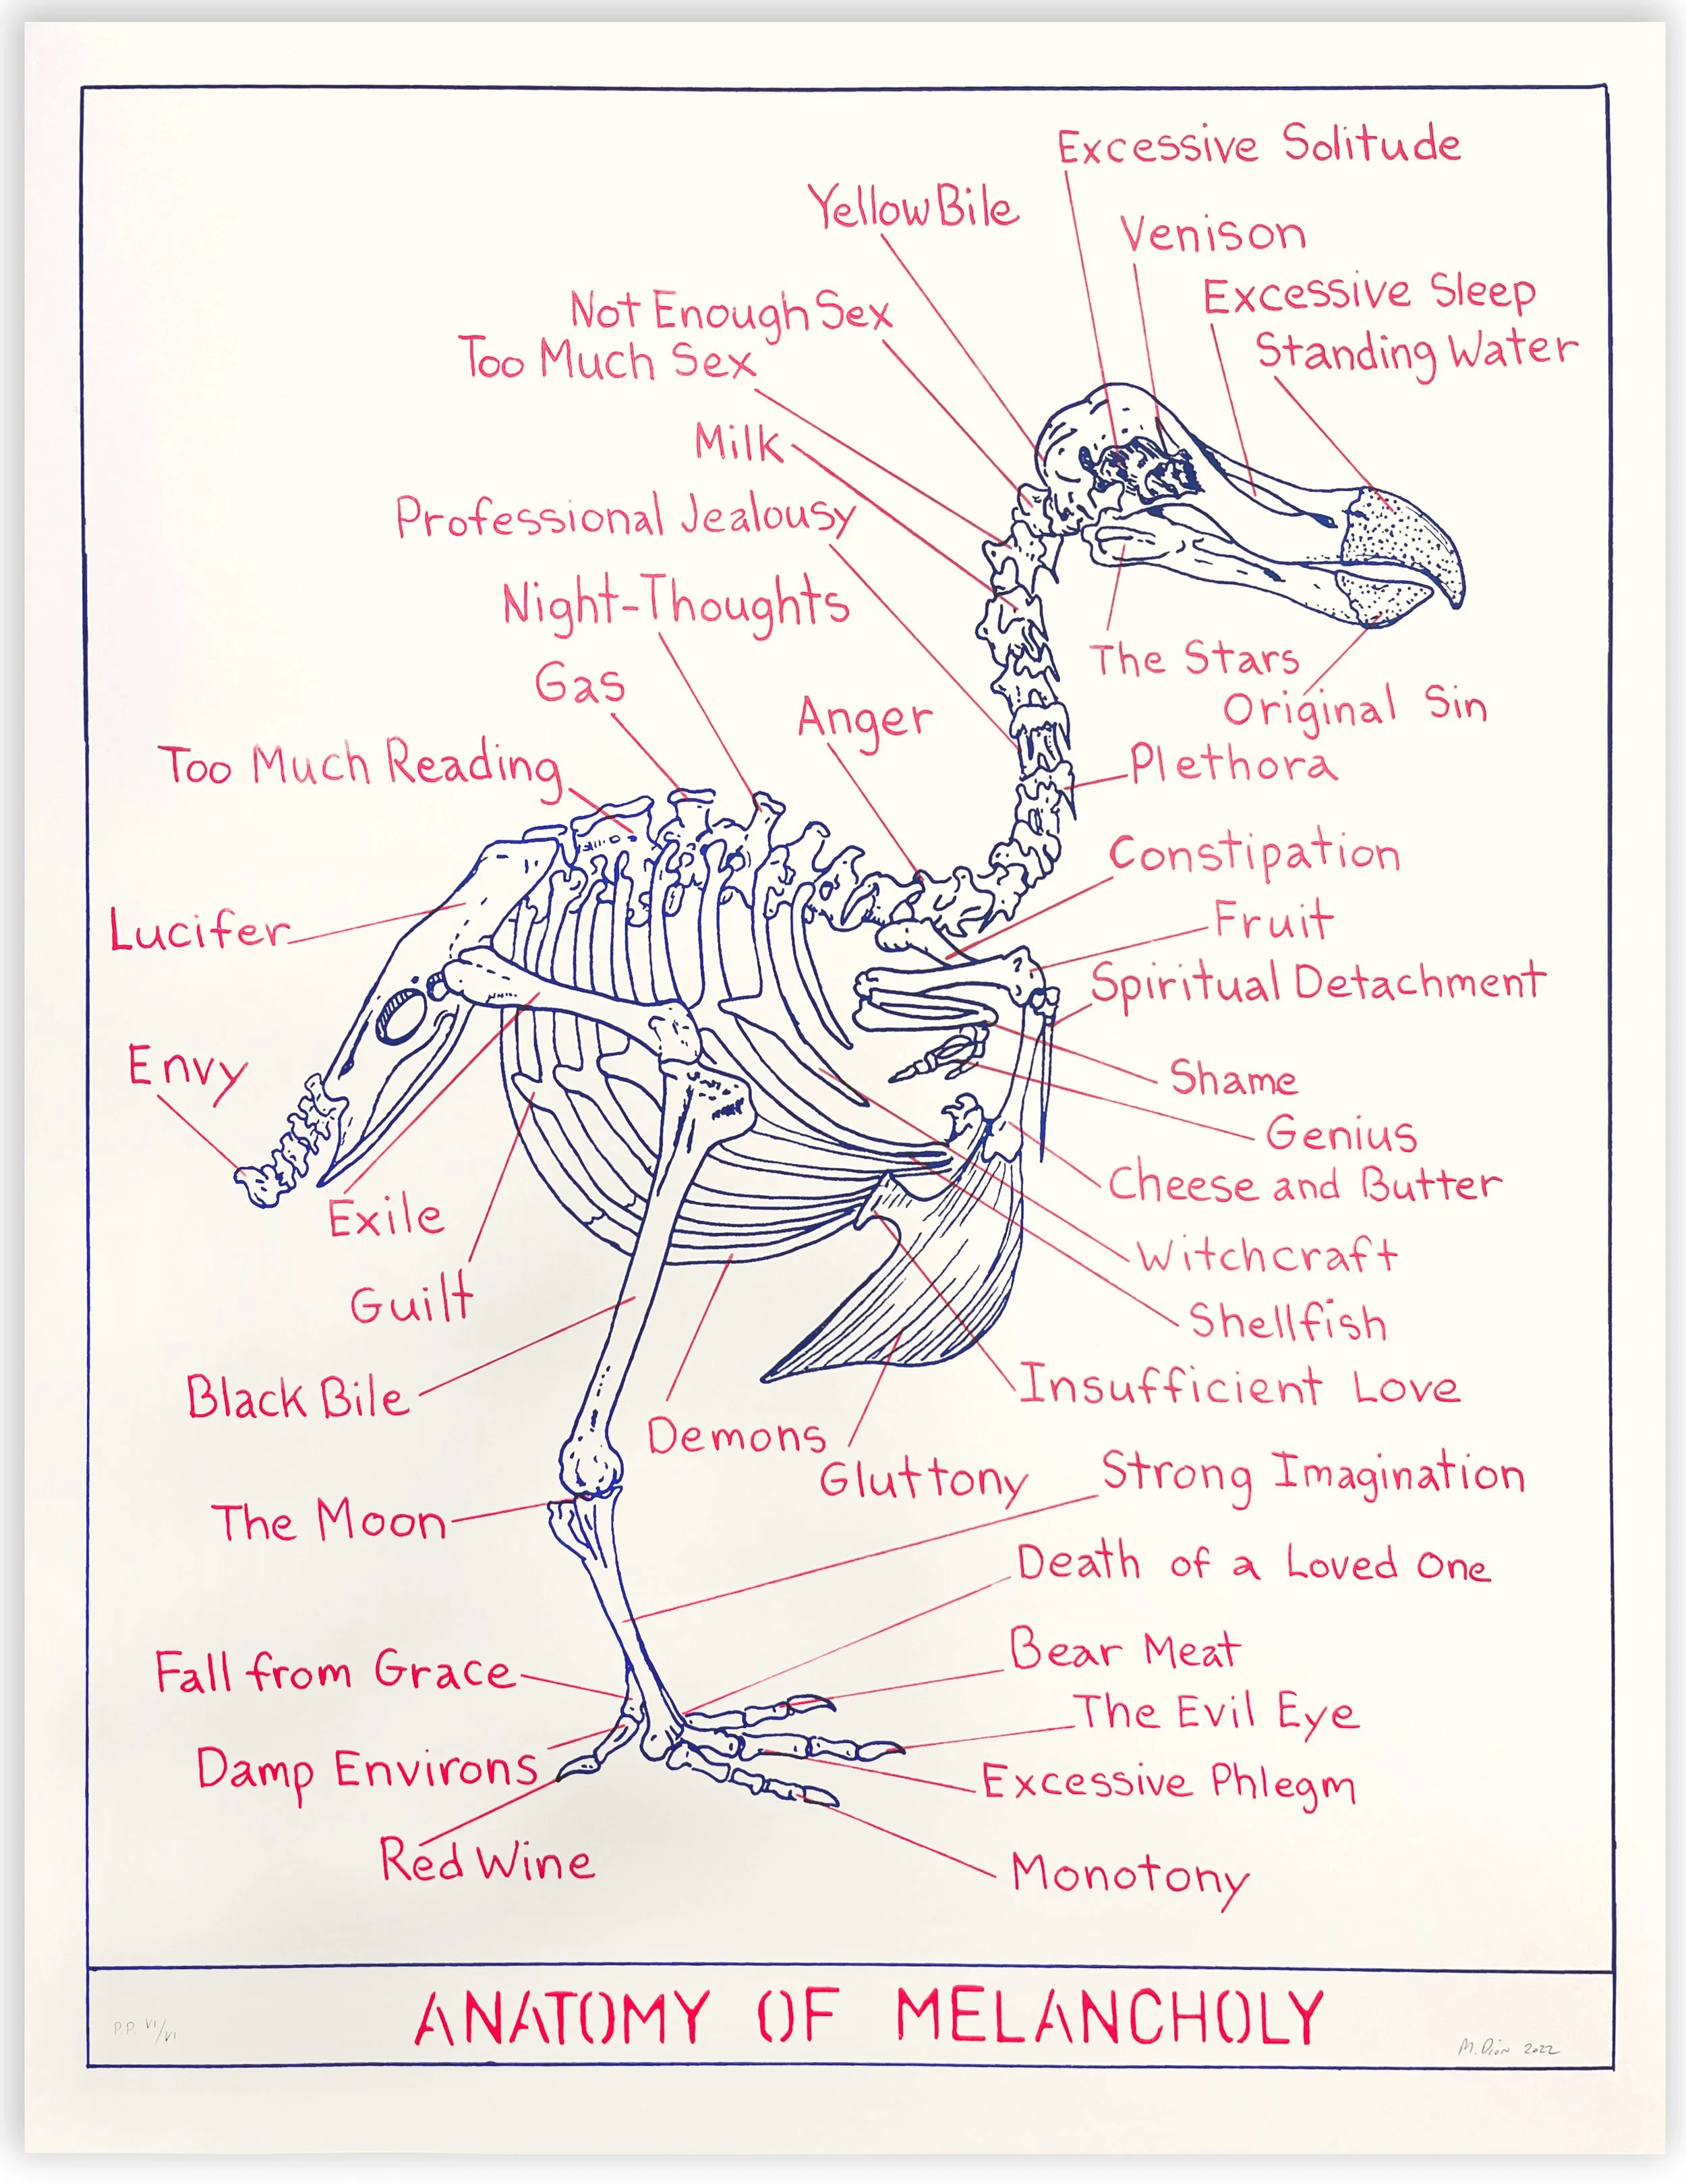 Excessive Solitude
Yellow Bile
Venison
Excessive Sleep
Not Enough Sex
Standing Water
Too Much Sex
Milk
Professional Jealousy
Night-Thoughts
The Stars
Gas
Original Sin
Anger
Too Much Reading
Plethora
Constipation
Lucifer
Fruit
Spiritual Detachment
Envy
Shame
Genius
Cheese and Butter
Exile
Witchcraft
Guilt
Shellfish
Black Bile
Insufficient Love
Demons
Gluttony
Strong Imagination
The Moon
Death of a Loved One
Fall from Grace
Bear Meat
The Evil Eye
Damp Environs
Excessive Phlegm
Red Wine
Monotony
ANATOMY OF MELANCHOLY
P.P. VI/VI
M. Dion 2022